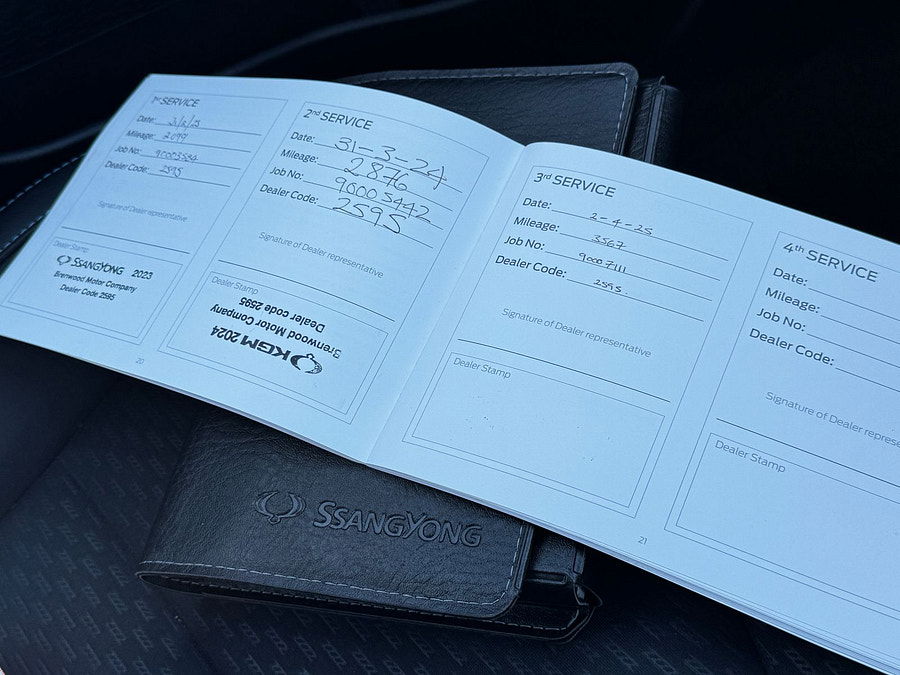 1st SERVICE
Date: 3/2/23
Mileage: 2099
Job No: 90003534
Dealer Code: 2595
Signature of Dealer representative
Dealer Stamp
SSANGYONG 2023
Brenwood Motor Company
Dealer Code 2595
20
2nd SERVICE
Date: 31-3-24
Mileage: 2876
Job No: 90005442
Dealer Code: 2595
Signature of Dealer representative
Dealer Stamp
KGM 2024
Brenwood Motor Company
Dealer code 2595
3rd SERVICE
Date: 2-4-25
Mileage: 3567
Job No: 90007111
Dealer Code: 2595
Signature of Dealer representative
Dealer Stamp
21
4th SERVICE
Date:
Mileage:
Job No:
Dealer Code:
Signature of Dealer
Dealer Stamp
SSANGYONG